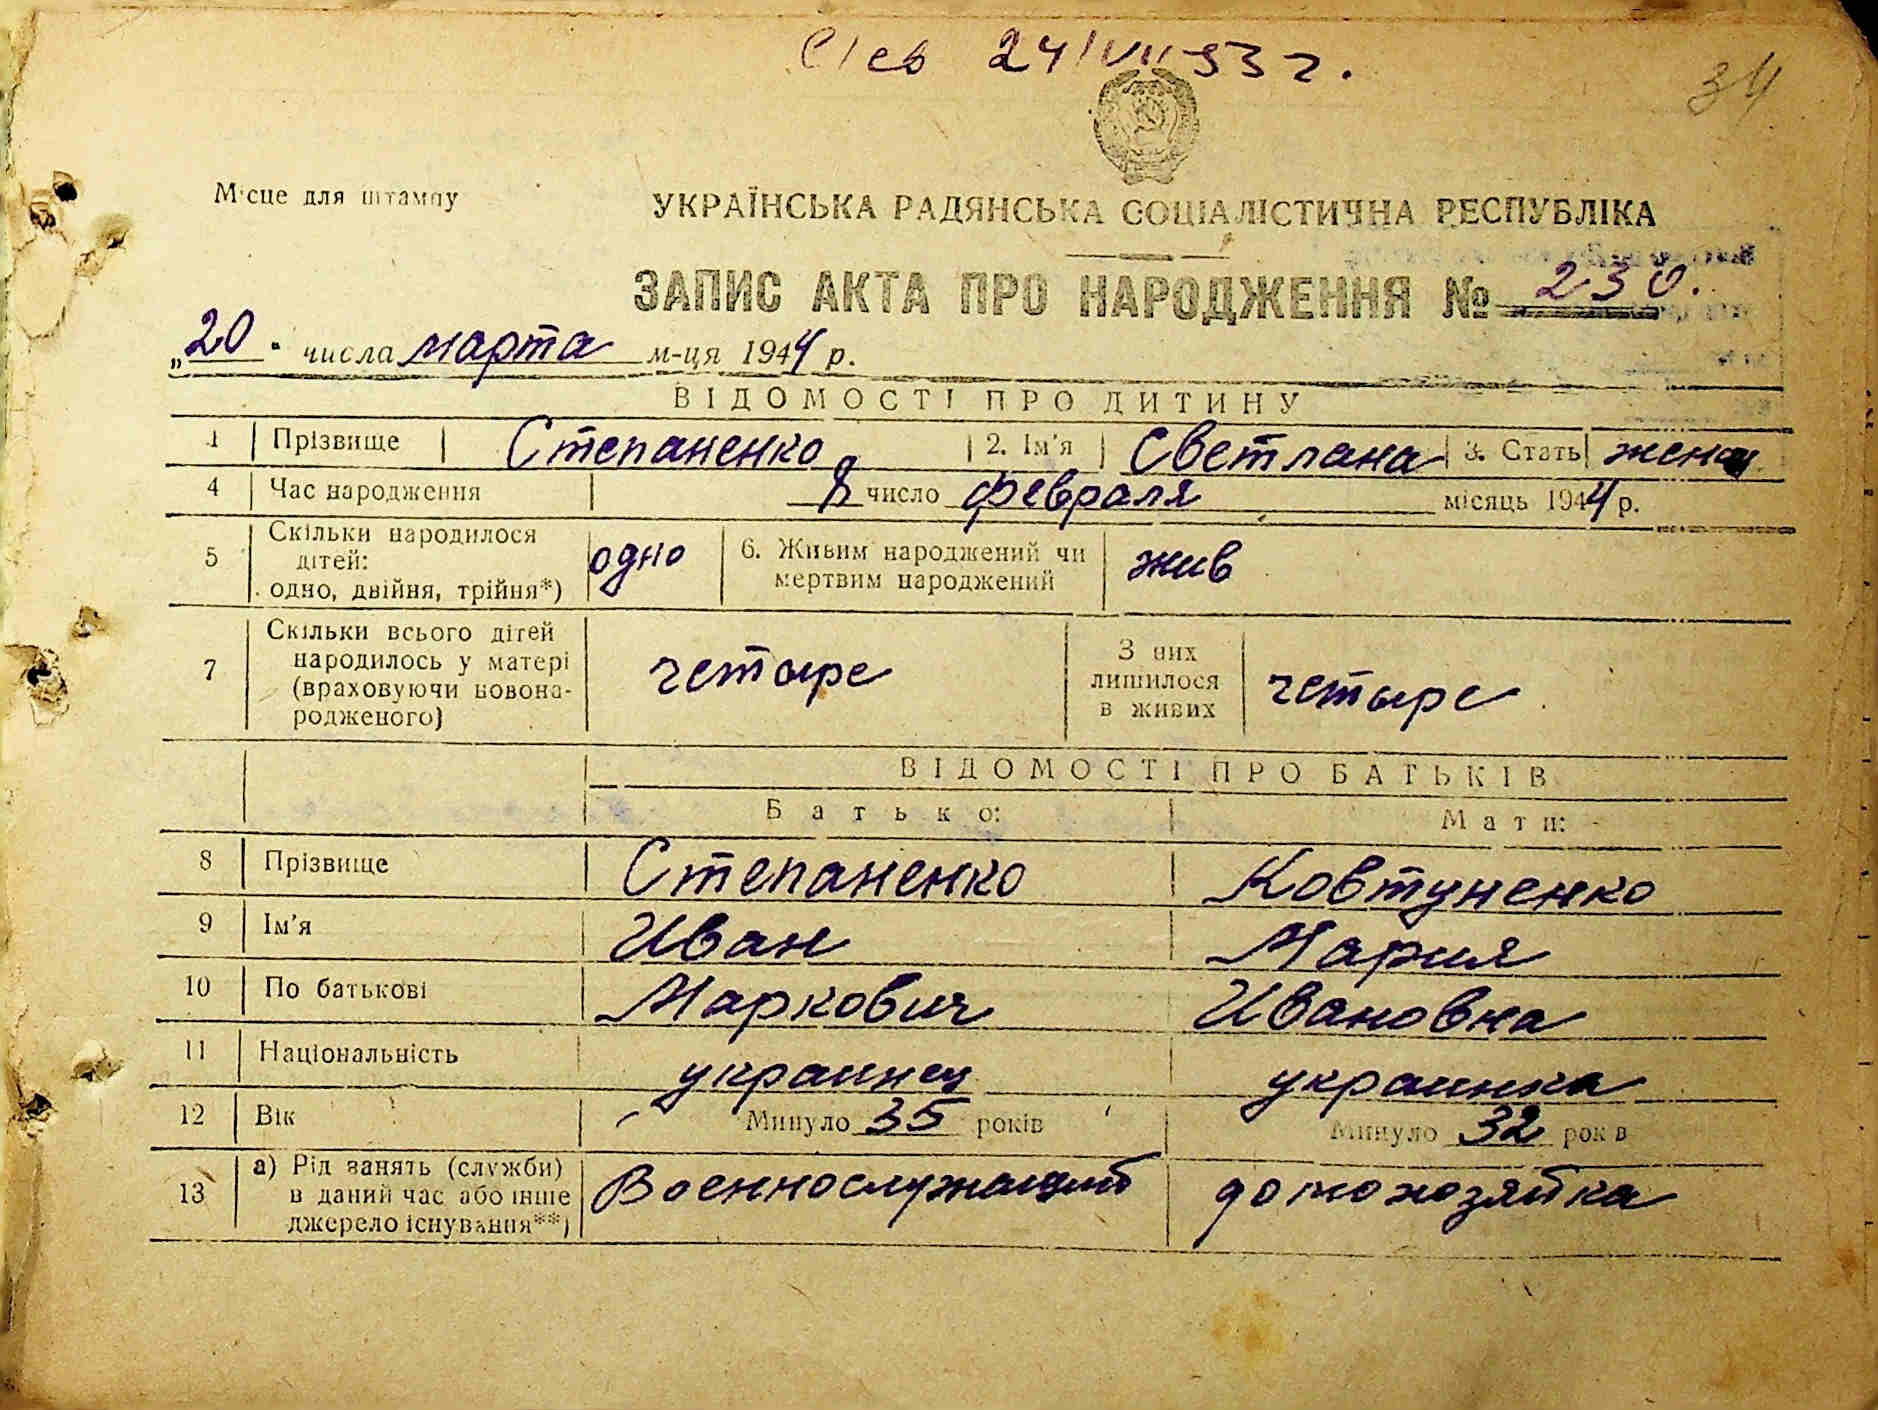 С/св 24/VII 53 г.
34
Місце для штампу
УКРАЇНСЬКА РАДЯНСЬКА СОЦІАЛІСТИЧНА РЕСПУБЛІКА
ЗАПИС АКТА ПРО НАРОДЖЕННЯ № 230.
„20" числа марта м-ця 1944 р.
ВІДОМОСТІ ПРО ДИТИНУ
1 Прізвище Степаненко 2. Ім'я Светлана 3. Стать женск
4 Час народження 8 число февраля місяць 1944 р.
5 Скільки народилося дітей: одно, двійня, трійня*) одно 6. Живим народжений чи мертвим народжений жив
7 Скільки всього дітей народилось у матері (враховуючи новонародженого) четыре З них лишилося в живих четыре
ВІДОМОСТІ ПРО БАТЬКІВ
Батько: Мати:
8 Прізвище Степаненко Ковтуненко
9 Ім'я Иван Мария
10 По батькові Маркович Ивановна
11 Національність украинец украинка
12 Вік Минуло 35 років Минуло 32 років
13 а) Рід занять (служби) в даний час або інше джерело існування**) Военнослужащий домохозяйка